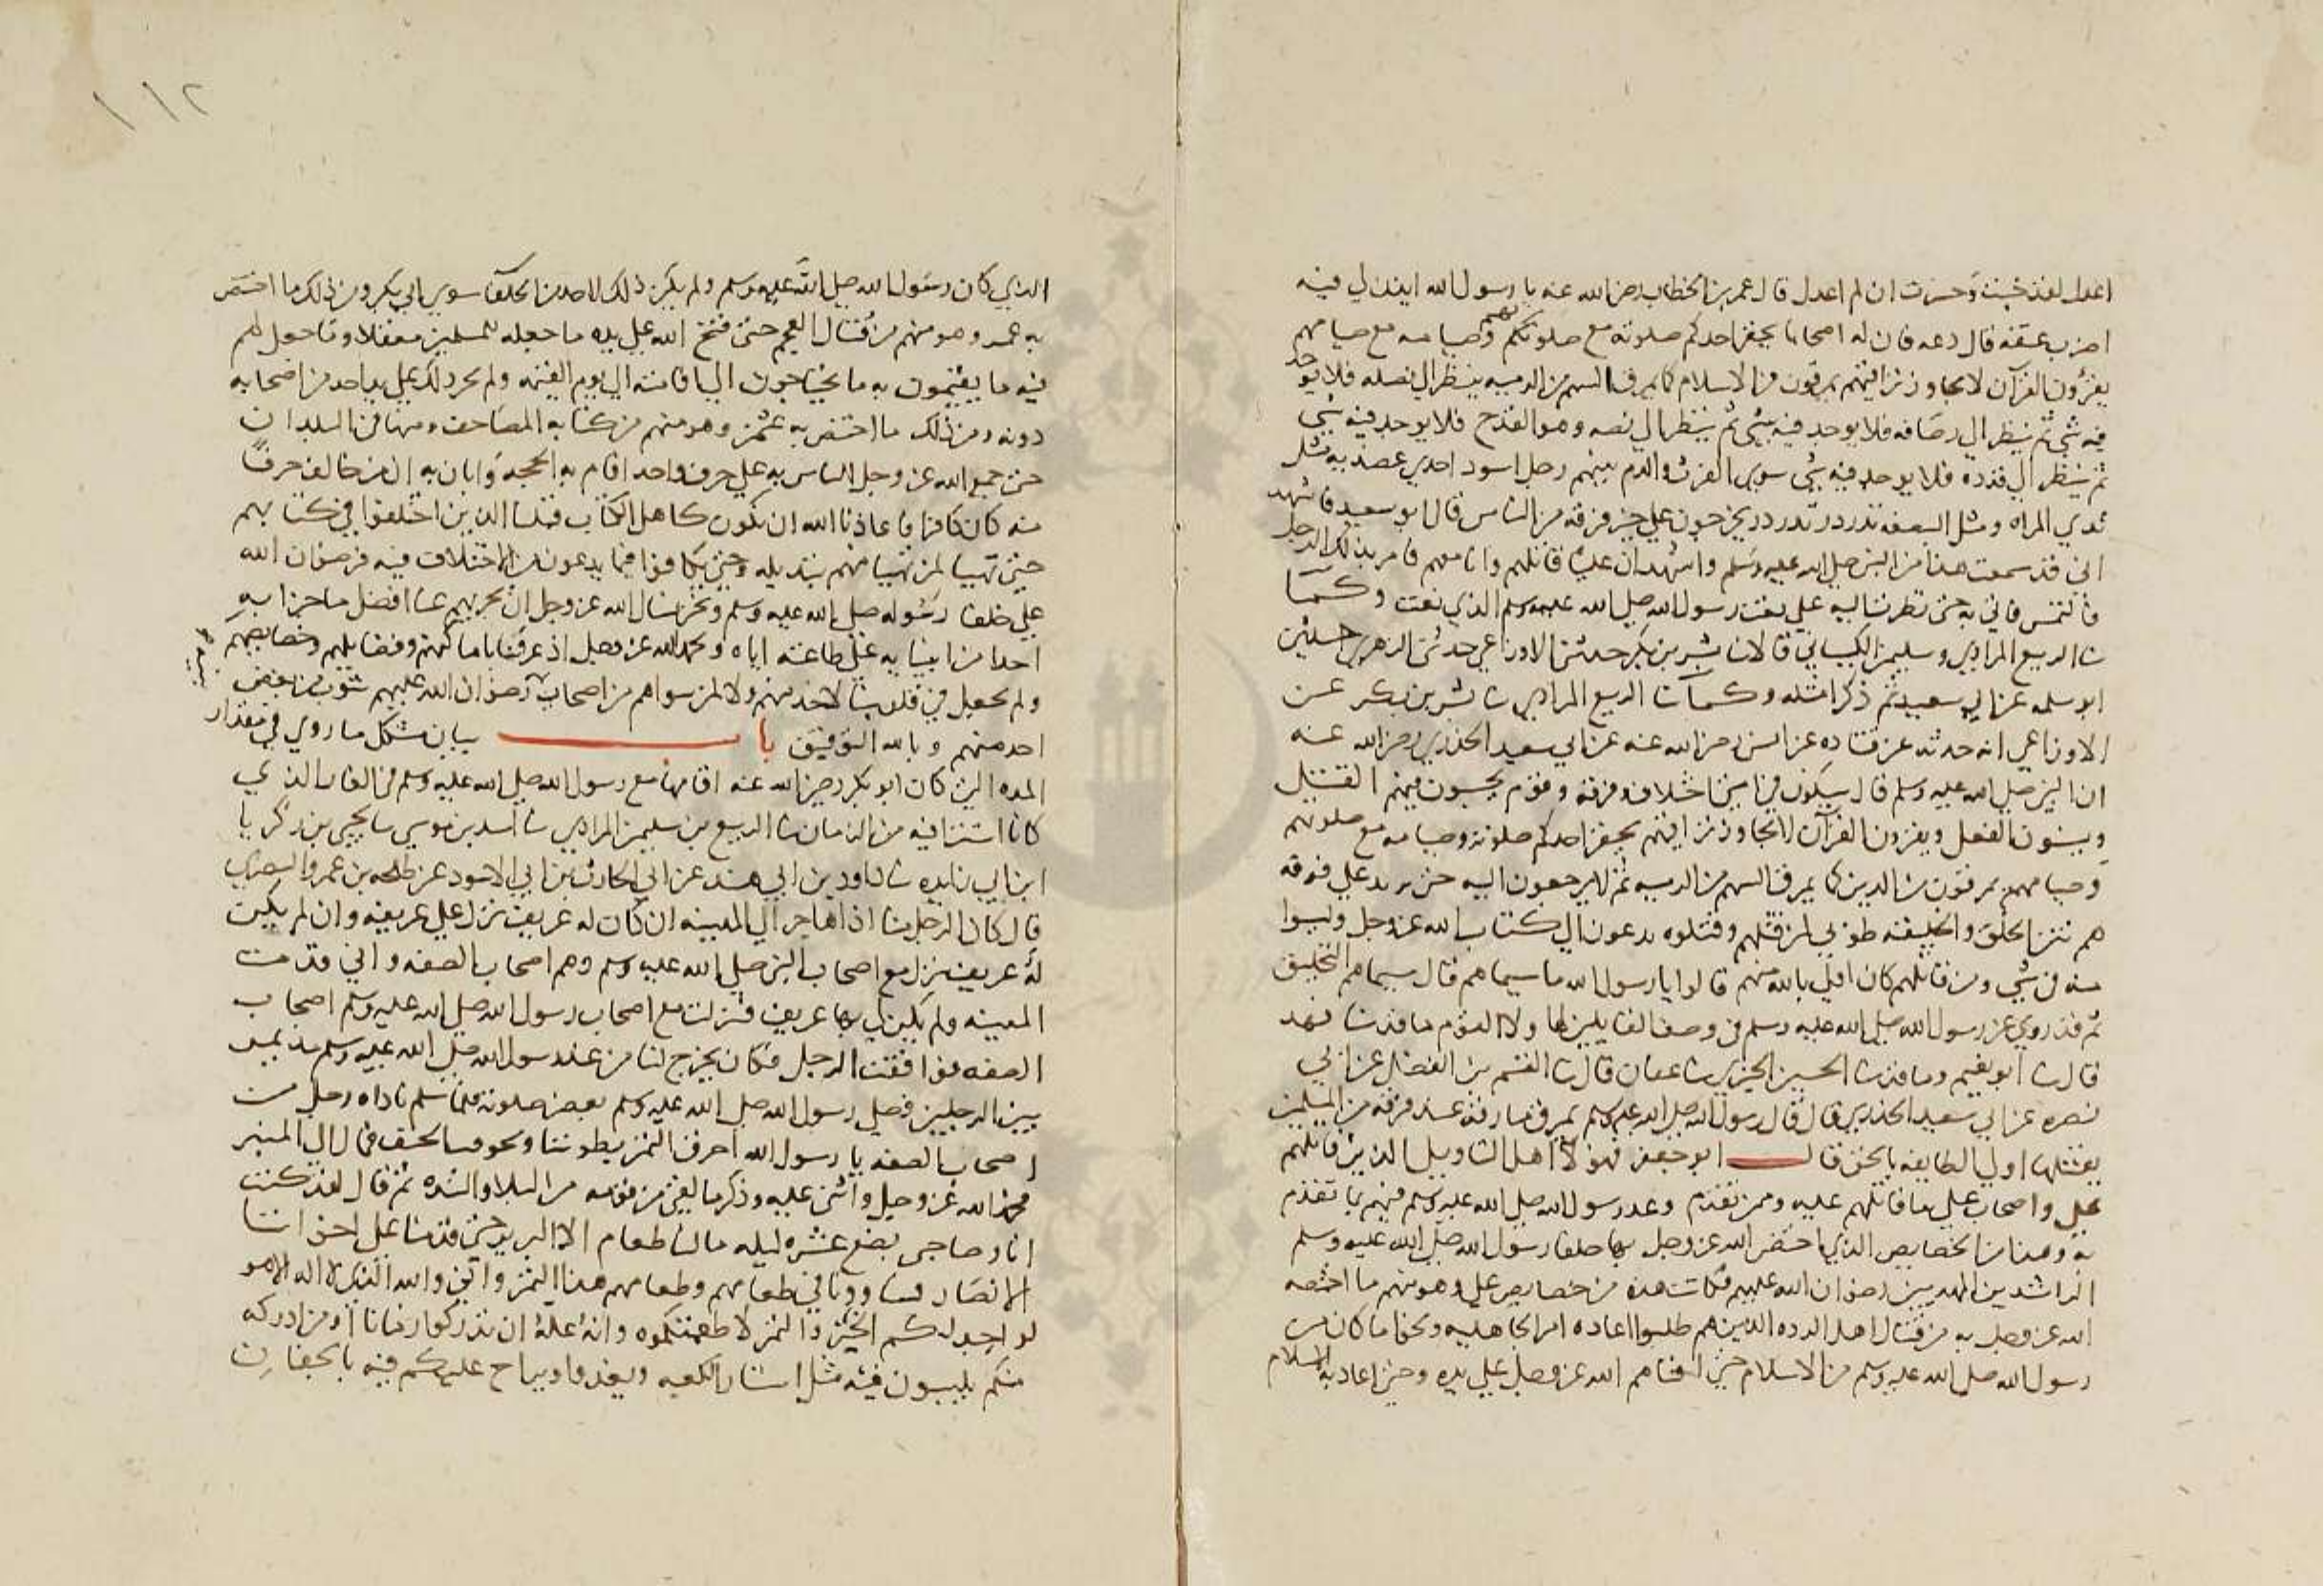 اعدل لقد خبت وخسرت ان لم اعدل قال عمر بن الخطاب رضي الله عنه يا رسول الله ايذن لي فيه
اضرب عنقه قال دعه فان له اصحابا يحقر احدكم صلوته مع صلوتهم وصيامه مع صيامهم
يقرؤن القرآن لا يجاوز تراقيهم يمرقون من الاسلام كما يمرق السهم من الرميه ينظر الى نصله فلا يوجد
فيه شي ثم ينظر الى رصافه فلا يوجد فيه شي ثم ينظر الى نضيه وهو القدح فلا يوجد فيه شي
ثم ينظر الى قذذه فلا يوجد فيه شي سبق الفرث والدم بينهم رجل اسود احدي عضديه مثل
ثدي المراه ومثل البضعه تدردر يخرجون على حين فرقه من الناس قال ابو سعيد فاشهد
اني قد سمعت هذا من النبي صلى الله عليه وسلم واشهد ان عليا قاتلهم وانا معهم فامر بذلك الرجل
فالتمس فاتي به حتى نظرت اليه على نعت رسول الله صلى الله عليه وسلم الذي نعت وكما
نا الربيع المرادي وسليمن الكيساني قالا نا بشر بن بكر حدثني الاوزاعي حدثني الزهري حدثني
ابو سلمه عن ابي سعيد ثم ذكرا مثله وكما نا الربيع المرادي نا بشر بن بكر عن
الاوزاعي انه حدثه عن قتاده عن انس رضي الله عنه عن ابي سعيد الخدري رضي الله عنه
ان النبي صلى الله عليه وسلم قال سيكون في امتي اختلاف وفرقه وقوم يحسنون القيل
ويسيئون الفعل ويقرون القرآن لا يجاوز تراقيهم يحقر احدكم صلوته وصيامه مع صلوتهم
وصيامهم يمرقون من الدين كما يمرق السهم من الرميه ثم لا يرجعون اليه حتى يرتد على فوقه
هم شر الخلق والخليقه طوبى لمن قتلهم وقتلوه يدعون الى كتاب الله عز وجل وليسوا
منه في شي ومن قاتلهم كان اولى بالله منهم قالوا يا رسول الله ما سيماهم قال سيماهم التحليق
ثم قد روي عن رسول الله صلى الله عليه وسلم في وصف القايلين لها ولا القوم ما قد نا فهد
قال نا ابو نعيم وما قد نا الحسين الحيري نا عفان قال نا القسم بن الفضل عن ابي
نضره عن ابي سعيد الخدري قال قال رسول الله صلى الله عليه وسلم تمرق مارقه عند فرقه من المسلمين
يقتلها اولى الطايفتين بالحق قال ابو جعفر فهولا اهل التاويل الذين قاتلهم
علي واصحاب علي ما قاتلهم عليه وممن تقدم وعد رسول الله صلى الله عليه وسلم فيهم بما تقدم
به وهذا من الخصايص الذي اختص الله عز وجل بها خلفا رسول الله صلى الله عليه وسلم
الراشدين المهديين رضوان الله عليهم فكانت هذه من خصايص علي وهو منهم ما اختصه
الله عز وجل به من قتال اهل الرده الذين هم طلبوا اعاده امر الجاهليه ومحو ما كان من
رسول الله صلى الله عليه وسلم من الاسلام حتى افناهم الله عز وجل على يده وحتى اعاد به الاسلام
١١٢
الذي كان رسول الله صلى الله عليه وسلم ولم يكن ذلك لاحد من الخلفا سوى ابي بكر ومن ذلك ما اختص
به عمر وهو منهم من قتال العجم حتى فتح الله على يده ما جعله للمسلمين معقلا وما جعل لهم
فيه ما يقيمون به ما يحتاجون الى اقامته الى يوم القيمه ولم يجر ذلك على يد احد من اصحابه
دونه ومن ذلك ما اختص به عثمن وهو منهم من كتابه المصاحف في البلدان
حتى جمع الله عز وجل الناس به على حرف واحد اقام به الحجه وابان به ان من خالف حرفا
منه كان كافرا فاعاذنا الله ان نكون كاهل الكتاب قبلنا الذين اختلفوا في كتابهم
حتى تهيا لمن تهيا منهم تبديله وحتى تكافوا فيما يدعون من الاختلاف فيه فرضوان الله
على خلفا رسوله صلى الله عليه وسلم ونحن نسال الله عز وجل ان يجزيهم عنا افضل ما جزا به
احدا من انبيايه على طاعته اياه ونحمد الله عز وجل اذ عرفنا باماكنهم وفضايلهم وخصايصهم
ولم يجعل في قلوبنا لاحد منهم ولا لمن سواهم من اصحابه رضوان الله عليهم
احد منهم وبالله التوفيق باب بيان مشكل ما روي في مقدار
المده التي كان ابو بكر رضي الله عنه اقامها مع رسول الله صلى الله عليه وسلم في الغار الذي
كانا استترا فيه من الزمان نا الربيع بن سليمن المرادي نا اسد بن موسى نا يحيى بن زكريا
ابن ابي زايده نا داود بن ابي هند عن ابي الحارث بن ابي الاسود عن طلحه بن عمرو البصري
قال كان الرجل منا اذا هاجر الى المدينه ان كان له عريف نزل على عريفه وان لم يكن
له عريف نزل مع اصحاب النبي صلى الله عليه وسلم وهم اصحاب الصفه واني قدمت
المدينه ولم يكن لي بها عريف فنزلت مع اصحاب رسول الله صلى الله عليه وسلم اصحاب
الصفه فوافقت الرجل فكان يخرج لنا من عند رسول الله صلى الله عليه وسلم مد تمر
بين الرجلين فصلى رسول الله صلى الله عليه وسلم بعض صلوته فلما سلم ناداه رجل من
اصحاب الصفه يا رسول الله احرق التمر بطوننا الخنف فمال الى المنبر
فحمد الله عز وجل واثنى عليه وذكر ما لقي من قومه من البلا والشده ثم قال لقد كنت
انا وصاحبي بضع عشره ليله ما لنا طعام الا البرير حتى قدمنا على اخواننا
الانصار فساوونا في طعامهم وطعامهم هذا التمر واني والله الذي لا اله الا هو
لو اجد لكم الخبز والتمر لاطعمتكموه وانه عله ان تدركوا زمانا او من ادركه
منكم يلبسون فيه مثل استار الكعبه ويغدا ويراح عليكم فيه بالجفان